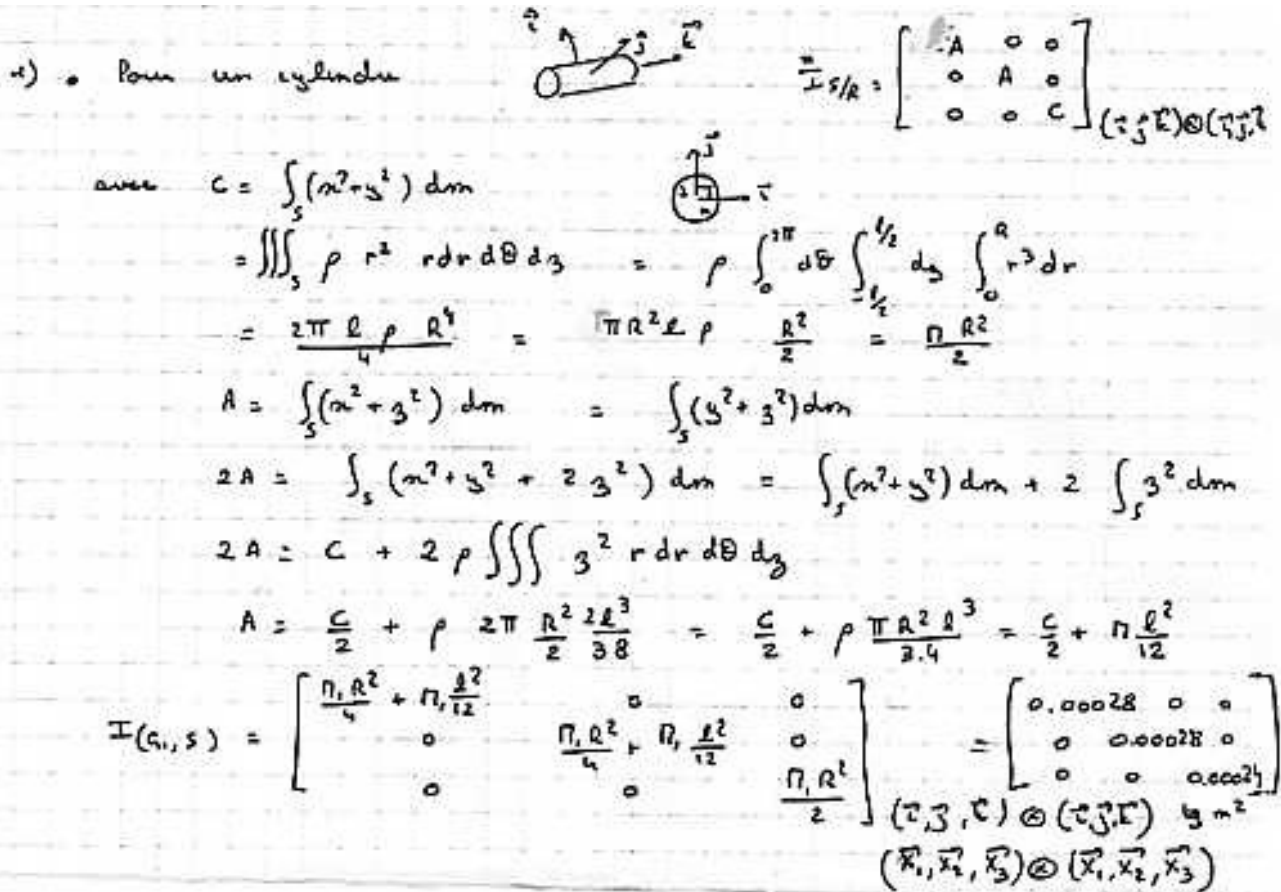 • Pour un cylindre
i j k
I S/R = [ A 0 0 ; 0 A 0 ; 0 0 C ] (i j k) ⊗ (i, j,
avec C = ∫_S (x² + y²) dm
j i
= ∭_S ρ r² r dr dθ dz = ρ ∫_0^{2π} dθ ∫_{-l/2}^{l/2} dz ∫_0^R r³ dr
= 2π l ρ R⁴ / 4 = π R² l ρ R²/2 = M R²/2
A = ∫_S (x² + z²) dm = ∫_S (y² + z²) dm
2A = ∫_S (x² + y² + 2 z²) dm = ∫_S (x² + y²) dm + 2 ∫_S z² dm
2A = C + 2 ρ ∭ z² r dr dθ dz
A = C/2 + ρ 2π R²/2 2l³/3 8 = C/2 + ρ π R² l³/3.4 = C/2 + M l²/12
I(G₁, S) = [ M₁R²/4 + M₁ l²/12 0 0 ; 0 M₁R²/4 + M₁ l²/12 0 ; 0 0 M₁R²/2 ] = [ 0.00028 0 0 ; 0 0.00028 0 ; 0 0 0.00024 ]
(i, j, k) ⊗ (i, j, k) kg m²
(x₁, x₂, x₃) ⊗ (x₁, x₂, x₃)